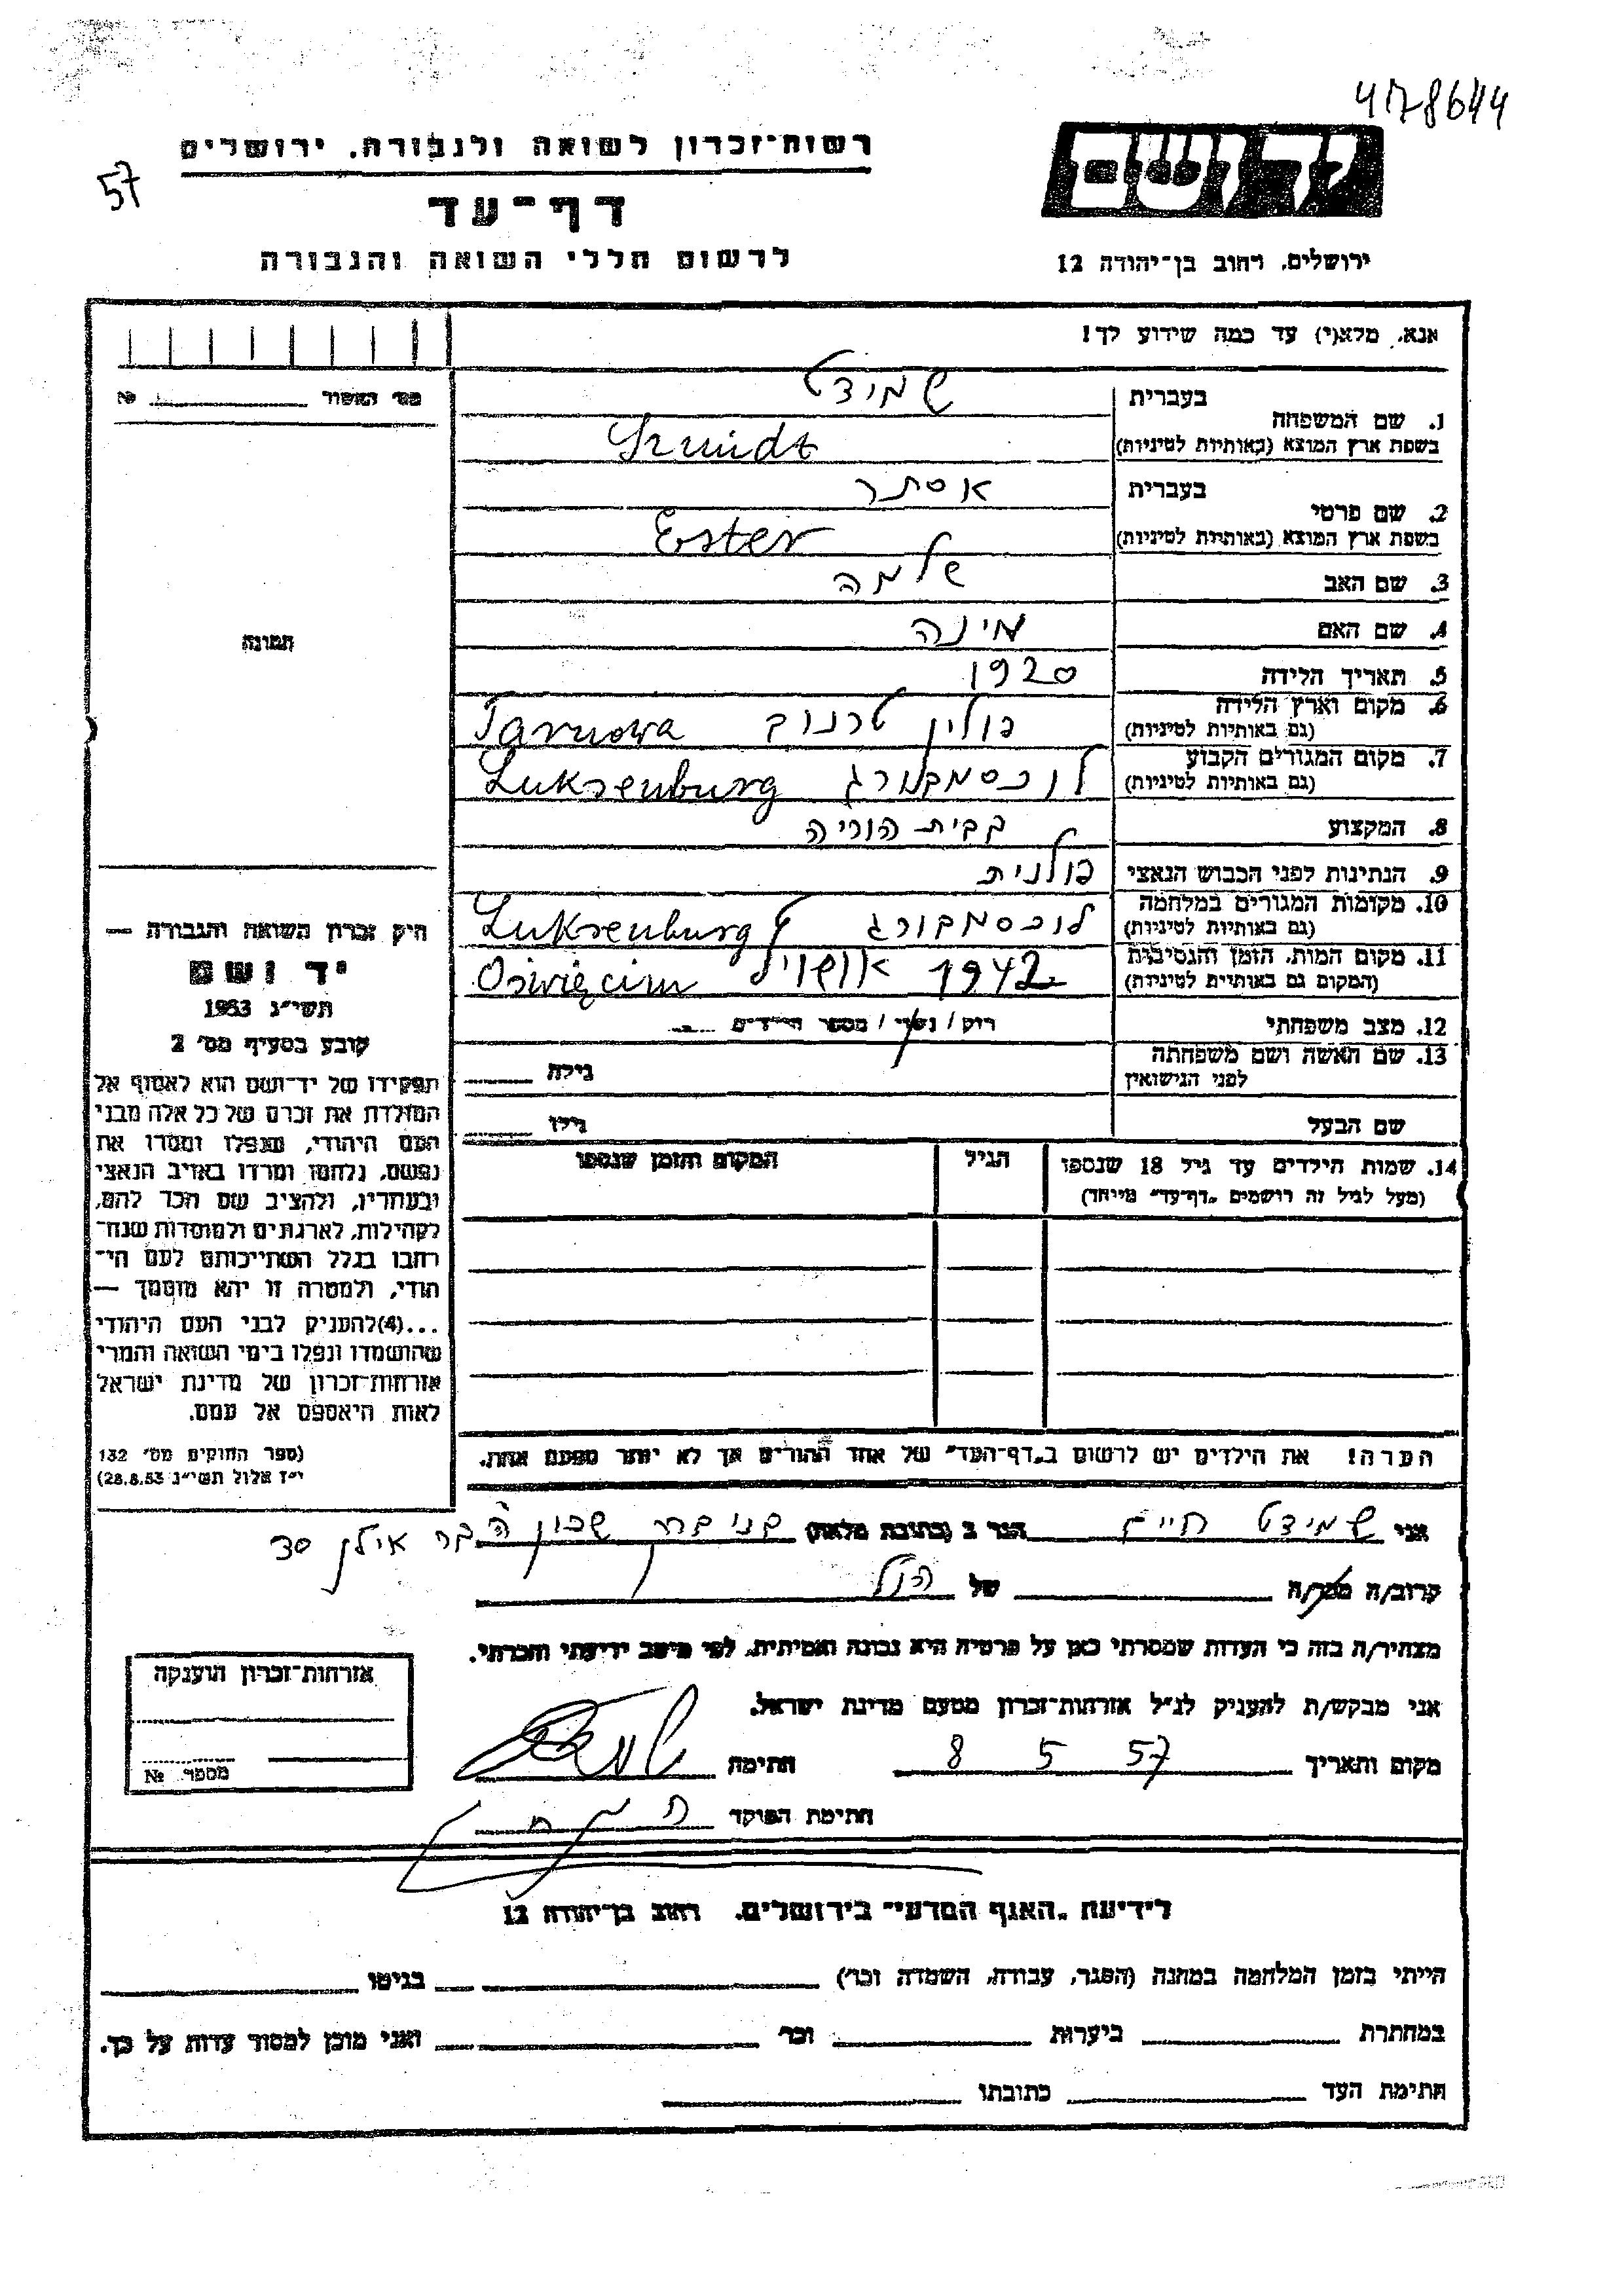 4178644
57
רשות־זכרון לשואה ולגבורה, ירושלים
דף־עד
לרשום חללי השואה והגבורה
יד ושם
ירושלים, רחוב בן־יהודה 12
אנא, מלא(י) עד כמה שידוע לך!
מס׳ האשור №
1. שם המשפחה בעברית שמידט
בשפת ארץ המוצא (באותיות לטיניות) Szmidt
2. שם פרטי בעברית אסתר
בשפת ארץ המוצא (באותיות לטיניות) Ester
3. שם האב שלמה
4. שם האם מינה
5. תאריך הלידה 1920
6. מקום וארץ הלידה (גם באותיות לטיניות) פולין טרנוב Tarnowa
7. מקום המגורים הקבוע (גם באותיות לטיניות) לוכסמבורג Luksenburg
8. המקצוע בבית הוריה
9. הנתינות לפני הכבוש הנאצי פולנית
10. מקומות המגורים במלחמה (גם באותיות לטיניות) לוכסמבורג Luksenburg
11. מקום המות, הזמן והנסיבות (המקום גם באותיות לטיניות) 1942 Oświęcim
12. מצב משפחתי רוק / נשוי / מספר הילדים
13. שם האשה ושם משפחתה לפני הנישואין גילה
שם הבעל גילו
14. שמות הילדים עד גיל 18 שנספו הגיל המקום והזמן שנספו
(מעל לגיל זה רושמים „דף־עד” מיוחד)
הערה! את הילדים יש לרשום ב„דף־העד” של אחד ההורים אך לא יותר מפעם אחת.
תמונה
חוק זכרון השואה והגבורה —
יד ושם
תשי״ג 1953
קובע בסעיף מס׳ 2
תפקידו של יד־ושם הוא לאסוף אל
המולדת את זכרם של כל אלה מבני
העם היהודי, שנפלו ומסרו את
נפשם, נלחמו ומרדו באויב הנאצי
ובעוזריו, ולהציב שם וזכר להם,
לקהילות, לארגונים ולמוסדות שנח־
רבו בגלל השתייכותם לעם הי־
הודי, ולמטרה זו יהא מוסמך —
...(4)להעניק לבני העם היהודי
שהושמדו ונפלו בימי השואה והמרי
אזרחות־זכרון של מדינת ישראל
לאות היאספם אל עמם.
(ספר החוקים מס׳ 132
י״ז אלול תשי״ג 28.8.53)
אני שמידט חיים הגר ב (כתובת מלאה) בני ברק שכון ה בר אילן 30
קרוב/ה מכר/ה של הנ״ל
מצהיר/ה בזה כי העדות שמסרתי כאן על פרטיה היא נכונה ואמיתית, לפי מיטב ידיעתי והכרתי.
אני מבקש/ת להעניק לנ״ל אזרחות־זכרון מטעם מדינת ישראל.
מקום ותאריך 8 5 57 חתימה
חתימת הפוקד
אזרחות־זכרון הוענקה
מספר №
לידיעת „האגף המדעי” בירושלים, רחוב בן־יהודה 12
הייתי בזמן המלחמה במחנה (הסגר, עבודה, השמדה וכו׳) בגיטו
במחתרת ביערות וכו׳ ואני מוכן למסור עדות על כך.
חתימת העד כתובתו